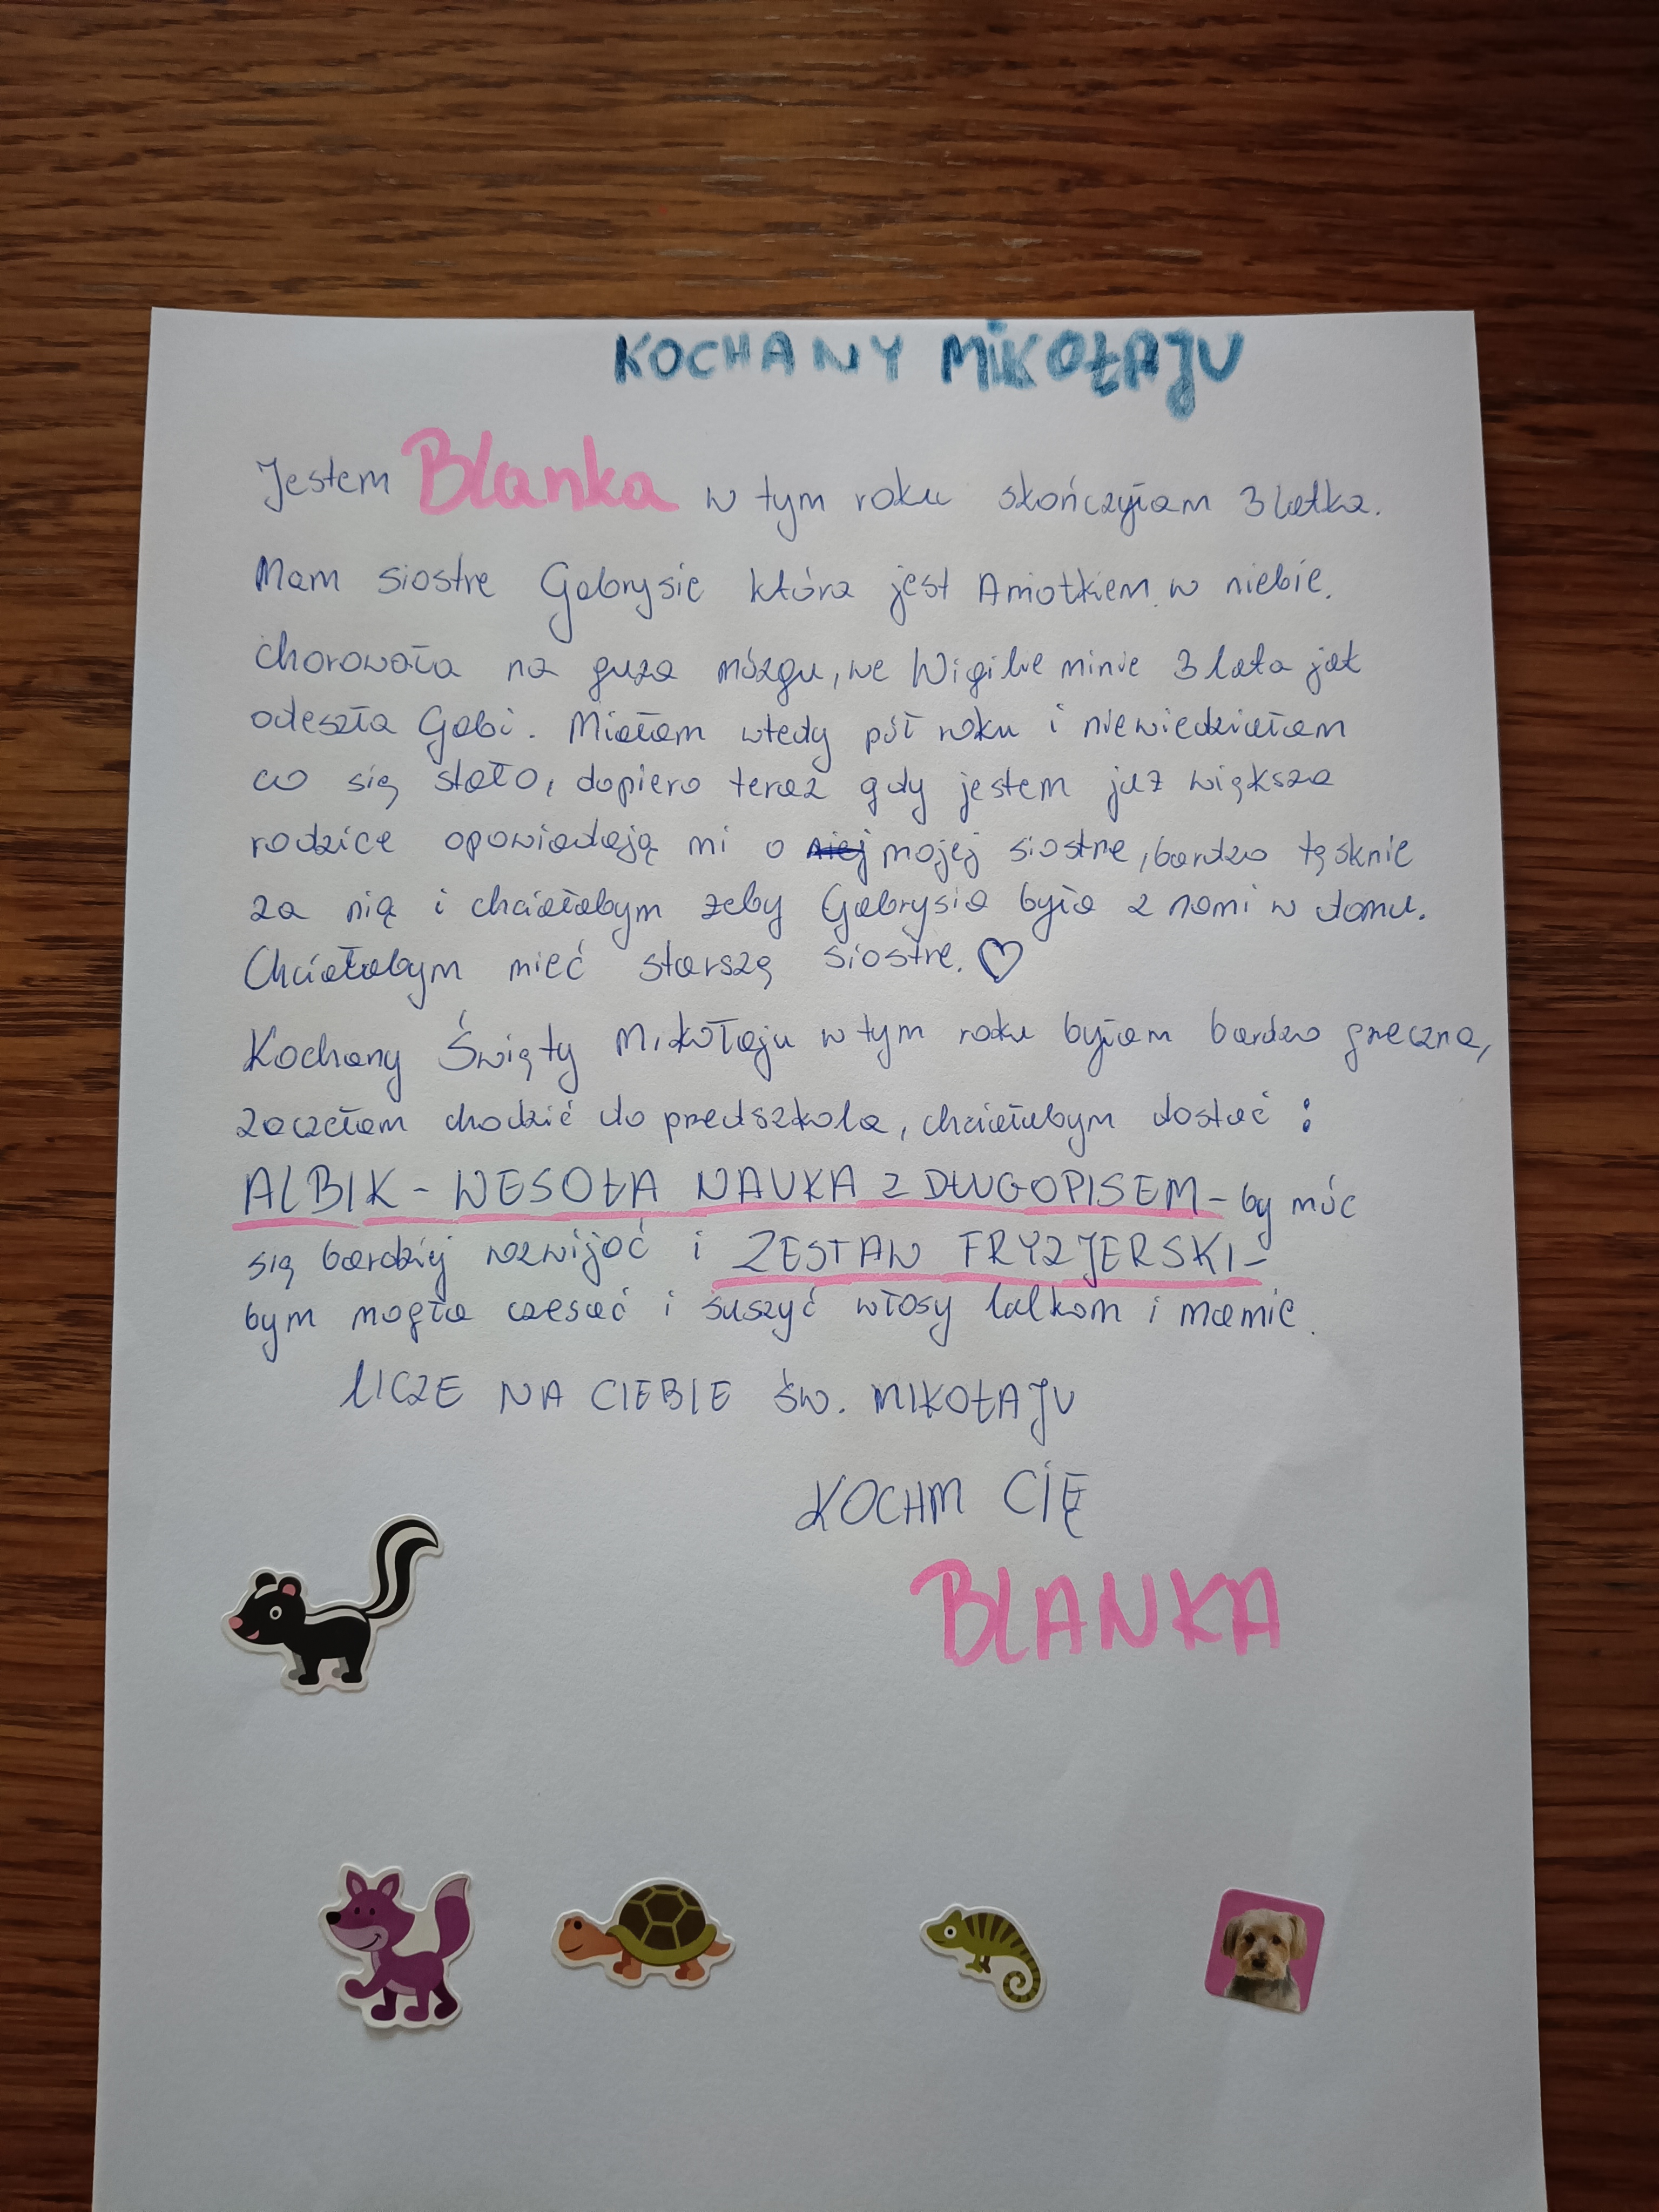 KOCHANY MIKOŁAJU
Jestem Blanka w tym roku skończyłam 3 latka.
Mam siostre Gabrysie która jest Aniołkiem w niebie.
Chorowała na guza mózgu, we Wigilie minie 3 lata jak
odeszła Gabi. Miałam wtedy pół roku i niewiedziałam
co się stało, dopiero teraz gdy jestem już większa
rodzice opowiadają mi o niej mojej siostrze, bardzo tęsknie
za nią i chciałabym żeby Gabrysia była z nami w domu.
Chciałabym mieć starszą siostrę. ♡
Kochany Święty Mikołaju w tym roku byłam bardzo grzeczna,
zaczełam chodzić do przedszkola, chciałabym dostać :
ALBIK - WESOŁA NAUKA Z DŁUGOPISEM - by móc
się bardziej rozwijać i ZESTAW FRYZJERSKI -
bym mogła czesać i suszyć włosy lalkom i mamie.
LICZE NA CIEBIE ŚW. MIKOŁAJU
KOCHM CIĘ
BLANKA